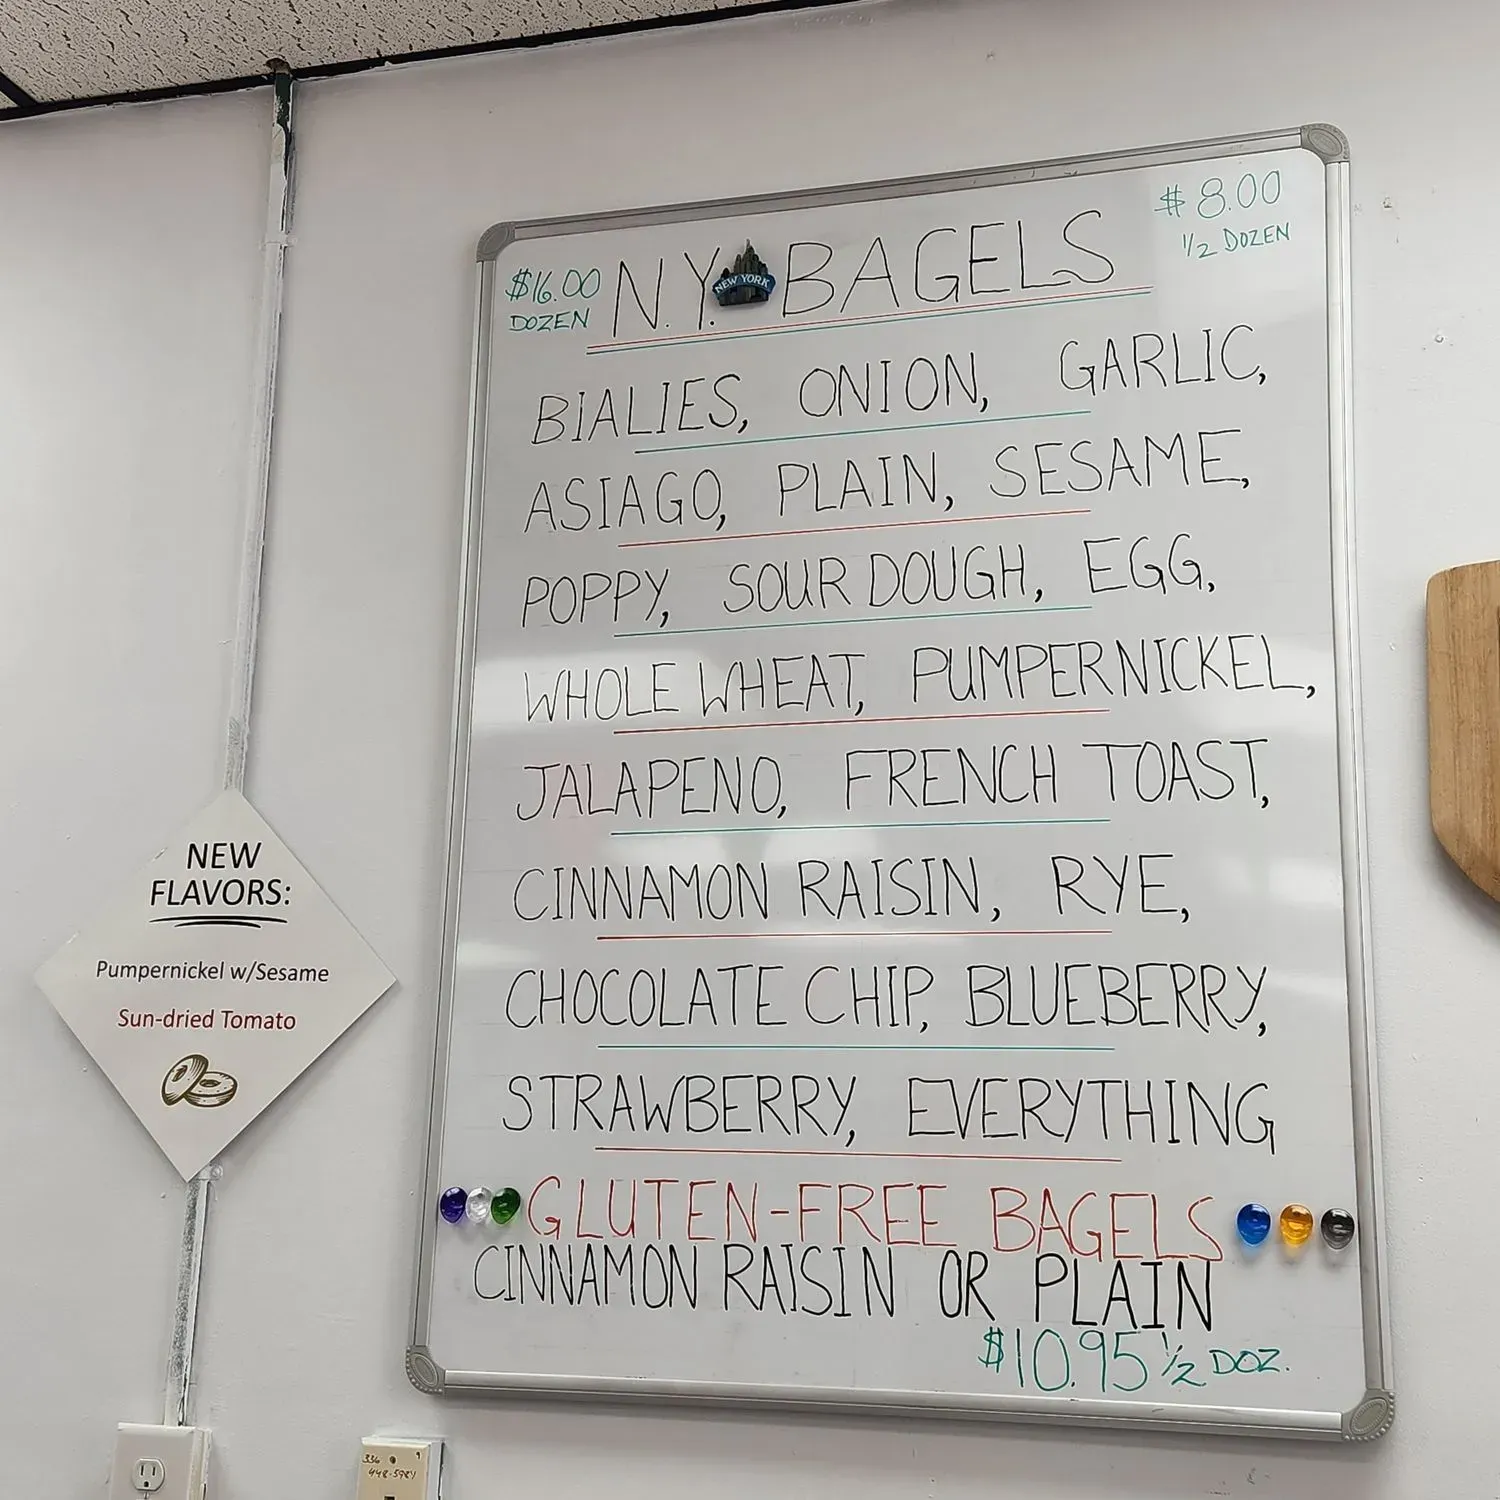 $16.00
DOZEN
N.Y. NEW YORK BAGELS
$8.00
1/2 DOZEN
BIALIES, ONION, GARLIC,
ASIAGO, PLAIN, SESAME,
POPPY, SOUR DOUGH, EGG,
WHOLE WHEAT, PUMPERNICKEL,
JALAPENO, FRENCH TOAST,
CINNAMON RAISIN, RYE,
CHOCOLATE CHIP, BLUEBERRY,
STRAWBERRY, EVERYTHING
GLUTEN-FREE BAGELS
CINNAMON RAISIN OR PLAIN
$10.95 1/2 DOZ.
NEW
FLAVORS:
Pumpernickel w/Sesame
Sun-dried Tomato
336